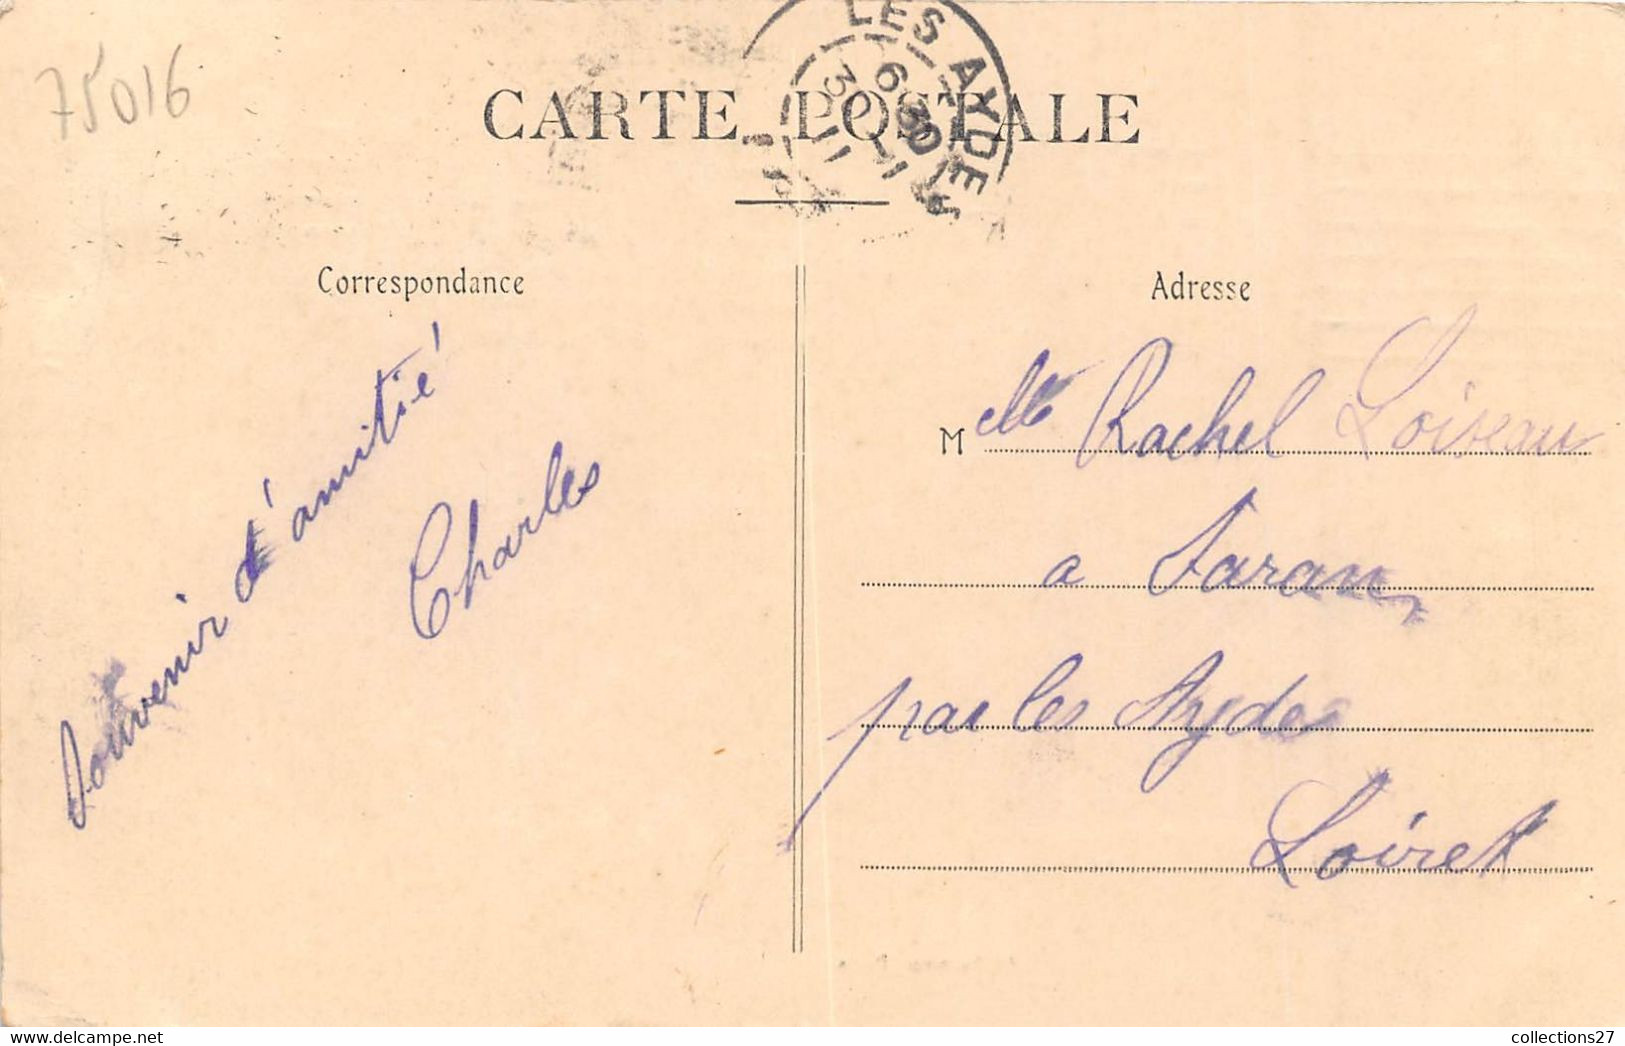 75016
CARTE POSTALE
LES AYDES
6 30
30 11
11
Correspondance
Souvenir d'amitié
Charles
Adresse
Melle Rachel Loiseau
a Saran
par les Aydes
Loiret
collections27